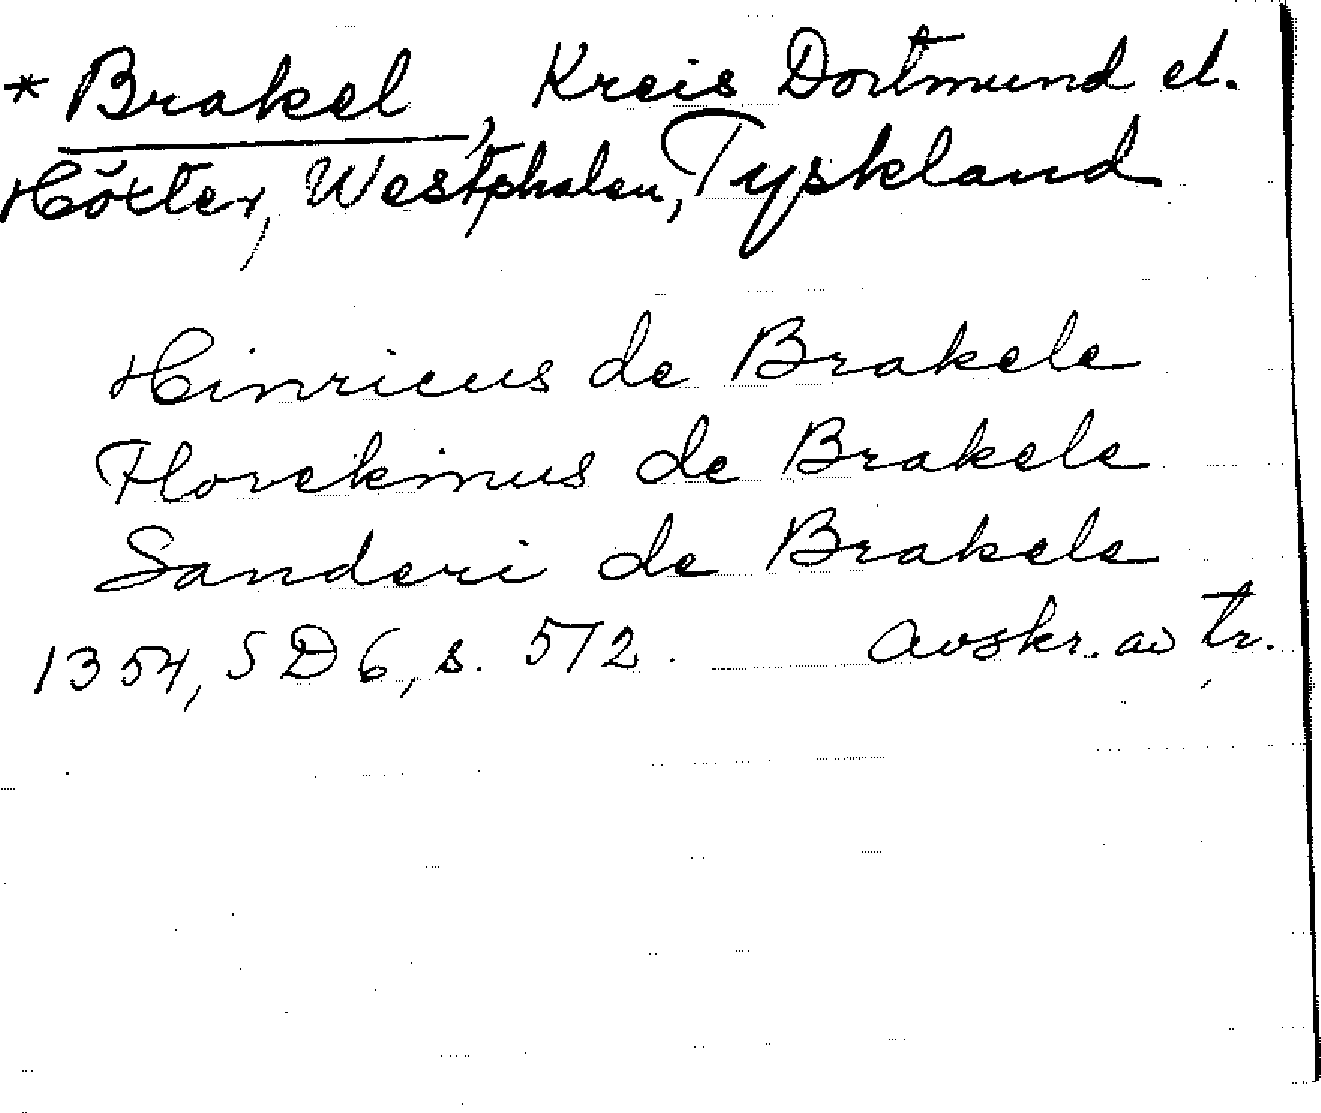 * Brakel, Kreis Dortmund el.
Höxter, Westphalen, Tyskland
Hinricus de Brakele
Florekinus de Brakele
Sanderi de Brakele
1354, SD 6, s. 572. Avskr. av tr.